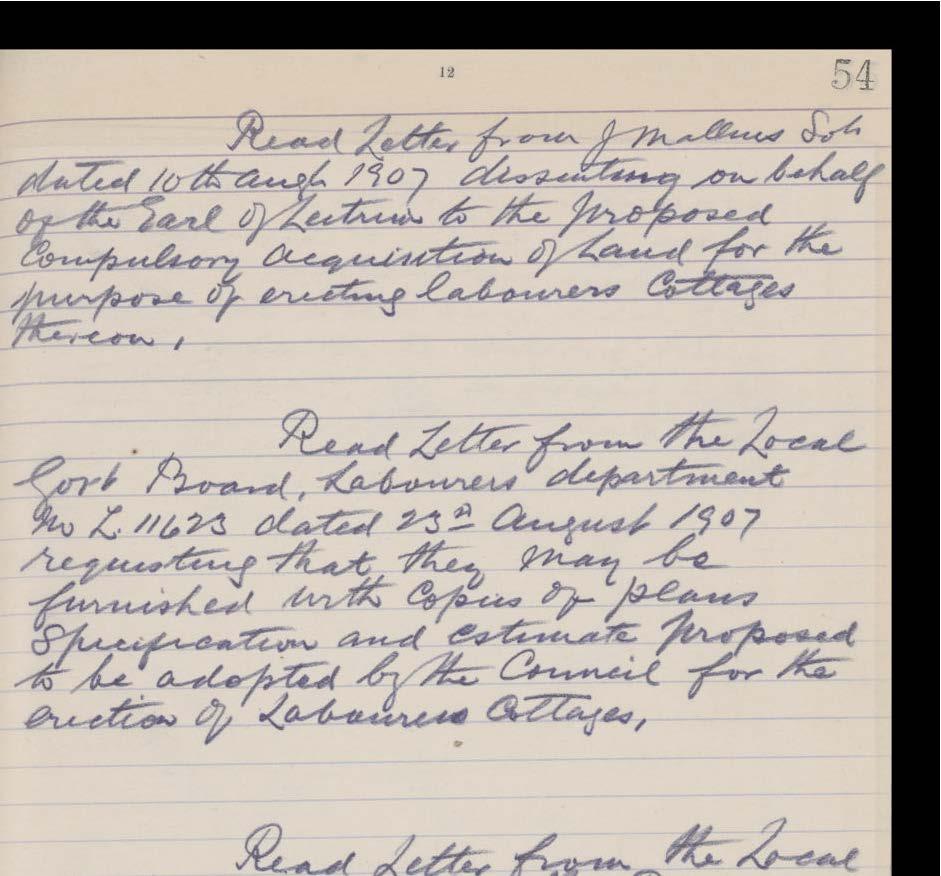 12
54
Read Letter from J Mallins Solr
dated 10th Augt 1907 dissenting on behalf
of the Earl of Leitrim to the proposed
Compulsory acquisition of Land for the
purpose of erecting labourers Cottages
thereon,
Read Letter from the Local
Govt Board, Labourers department
No L. 11623 dated 23rd August 1907
requesting that they may be
furnished with Copies of plans
Specification and estimate proposed
to be adopted by the Council for the
erection of Labourers Cottages,
Read Letter from the Local